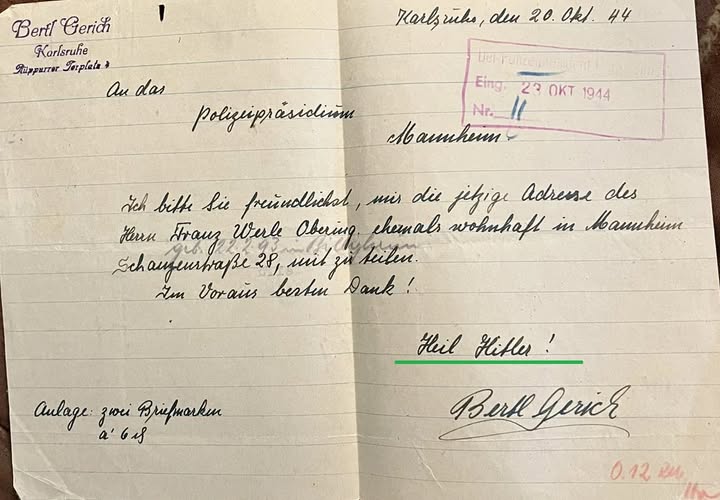 Bertl Gerich
Karlsruhe
Rüppurrer Torplatz 4
Karlsruhe, den 20. Okt. 44
An das
Polizeipräsidium
Mannheim
Der Polizeipräsident
Eing. 23 OKT 1944
Nr. 11
Ich bitte Sie freundlichst, mir die jetzige Adresse des
Herrn Franz Werle Obering. ehemals wohnhaft in Mannheim
geb. 22.2.93 in
Schanzenstraße 28, mit zu teilen.
Im Voraus besten Dank!
Heil Hitler!
Bertl Gerich
Anlage: zwei Briefmarken
a' 6
0.12